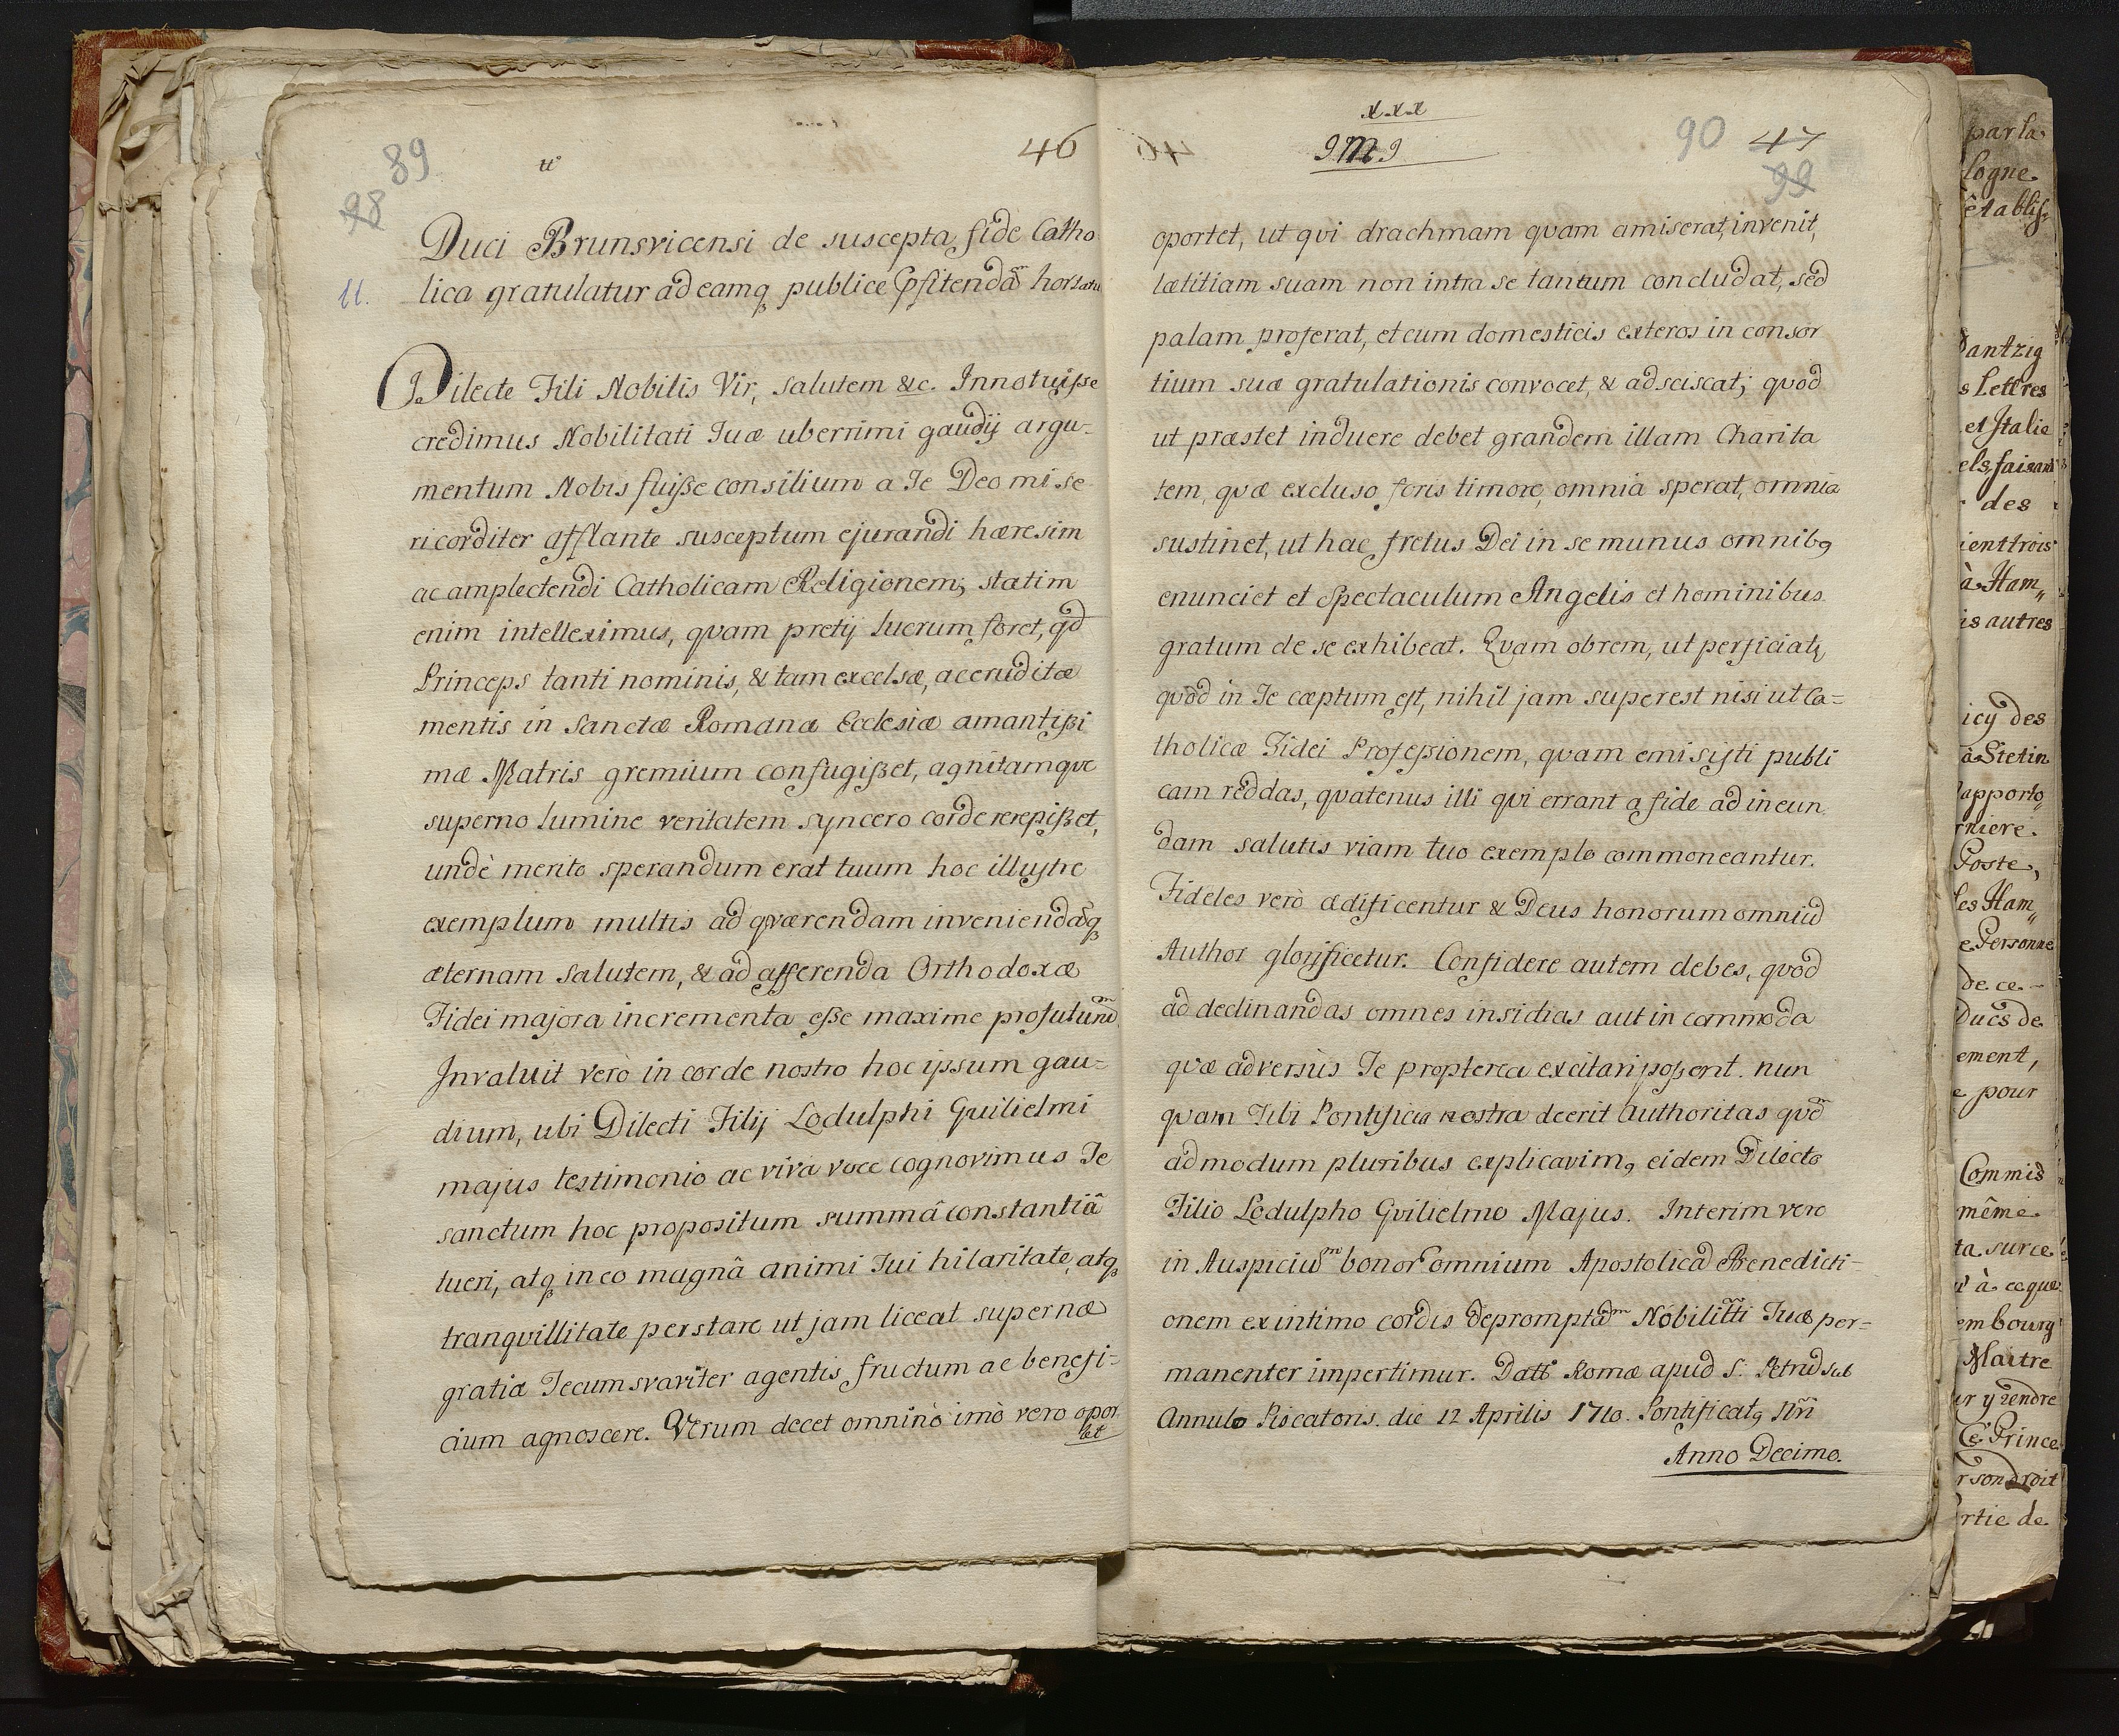 89
98
46
11.
Duci Brunsvicensi de suscepta fide Catho
lica gratulatur ad eamq publice pfitendã hortatu
Dilecte Fili Nobilis Vir, salutem &c. Innotuisse
credimus Nobilitati Tuæ uberrimi gaudij argu-
mentum Nobis fuisse consilium a Te Deo mise
ricorditer afflante susceptum ejurandi hæresim
ac amplectendi Catholicam Religionem, statim
enim intelleximus, quam pretij lucrum foret, qd
Princeps tanti nominis, & tam excelsæ, ac eruditæ
mentis in Sanctæ Romanæ Ecclesiæ amantissi
mæ Matris gremium confugisset, agnitamqve
superno lumine veritatem syncero corde recepisset,
undè merito sperandum erat tuum hoc illustre
exemplum multis ad qværendam inveniendãq
æternam salutem, & ad afferenda Orthodoxæ
Fidei majora incrementa esse maxime profutum
Invaluit verò in corde nostro hoc ipsum gau-
dium, ubi Dilecti Filij Lodulphi Guilielmi
majus testimonio ac vivâ voce cognovimus Te
sanctum hoc propositum summâ constantiâ
tueri, atq in eo magnâ animi Tui hilaritate, atq
tranqvillitate perstare ut jam liceat supernæ
gratiæ Tecum svaviter agentis fructum ac benefi-
cium agnoscere. Verum decet omninò imò vero opor
tet
xxx
9m9
90
47
99
oportet, ut qvi drachmam qvam amiserat, invenit,
lætitiam suam non intra se tantum concludat, sed
palam proferat, et cum domesticis exteros in consor
tium suæ gratulationis convocet, & adsciscat; quod
ut præstet induere debet grandem illam Charita
tem, qvæ excluso foris timore, omnia sperat, omnia
sustinet, ut hac fretus Dei in se munus omnib9
enunciet et Spectaculum Angelis et hominibus
gratum de se exhibeat. Qvam obrem, ut perficiat,
qvod in Te cæptum est, nihil jam superest nisi ut Ca=
tholicæ Fidei Professionem, qvam emisisti publi
cam reddas, qvatenus illi qvi errant a fide ad ineun
dam salutis viam tuo exemplo commoneantur.
Fideles verò ædificentur & Deus honorum omniũ
Author glorificetur. Confidere autem debes, qvod
ad declinandas omnes insidias aut incommoda
qvæ adversùs Te propterea excitari possent. nun
qvam Tibi Pontificia nostra deerit Authoritas qvẽ
admodum pluribus explicavim9 eidem Dilecto
Filio Lodulpho Gvilielmo Majus. Interim vero
in Auspiciũm bonor omnium Apostolicã Benedicti-
onem ex intimo cordis depromptãm Nobilitti Tuæ per-
manenter impertimur. Datt Romæ apud S. Petrũ sub
Annulo Piscatoris. die 12 Aprilis 1710. Pontificat9 Nri
Anno Decimo.
par la
logne.
établis
Dantzig
s Lettres
et Italie
els, faisant
des
ient trois
à Ham„
is autres
icy des
à Stetin
apporto„
rniere.
Poste,
les Ham„
e Personne
de ce
Ducs de
ement,
e pour
Commis
même
ta surce
à ce que
embourg
Maitre
ur y rendre
Ce Prince
r son droit
rtie de